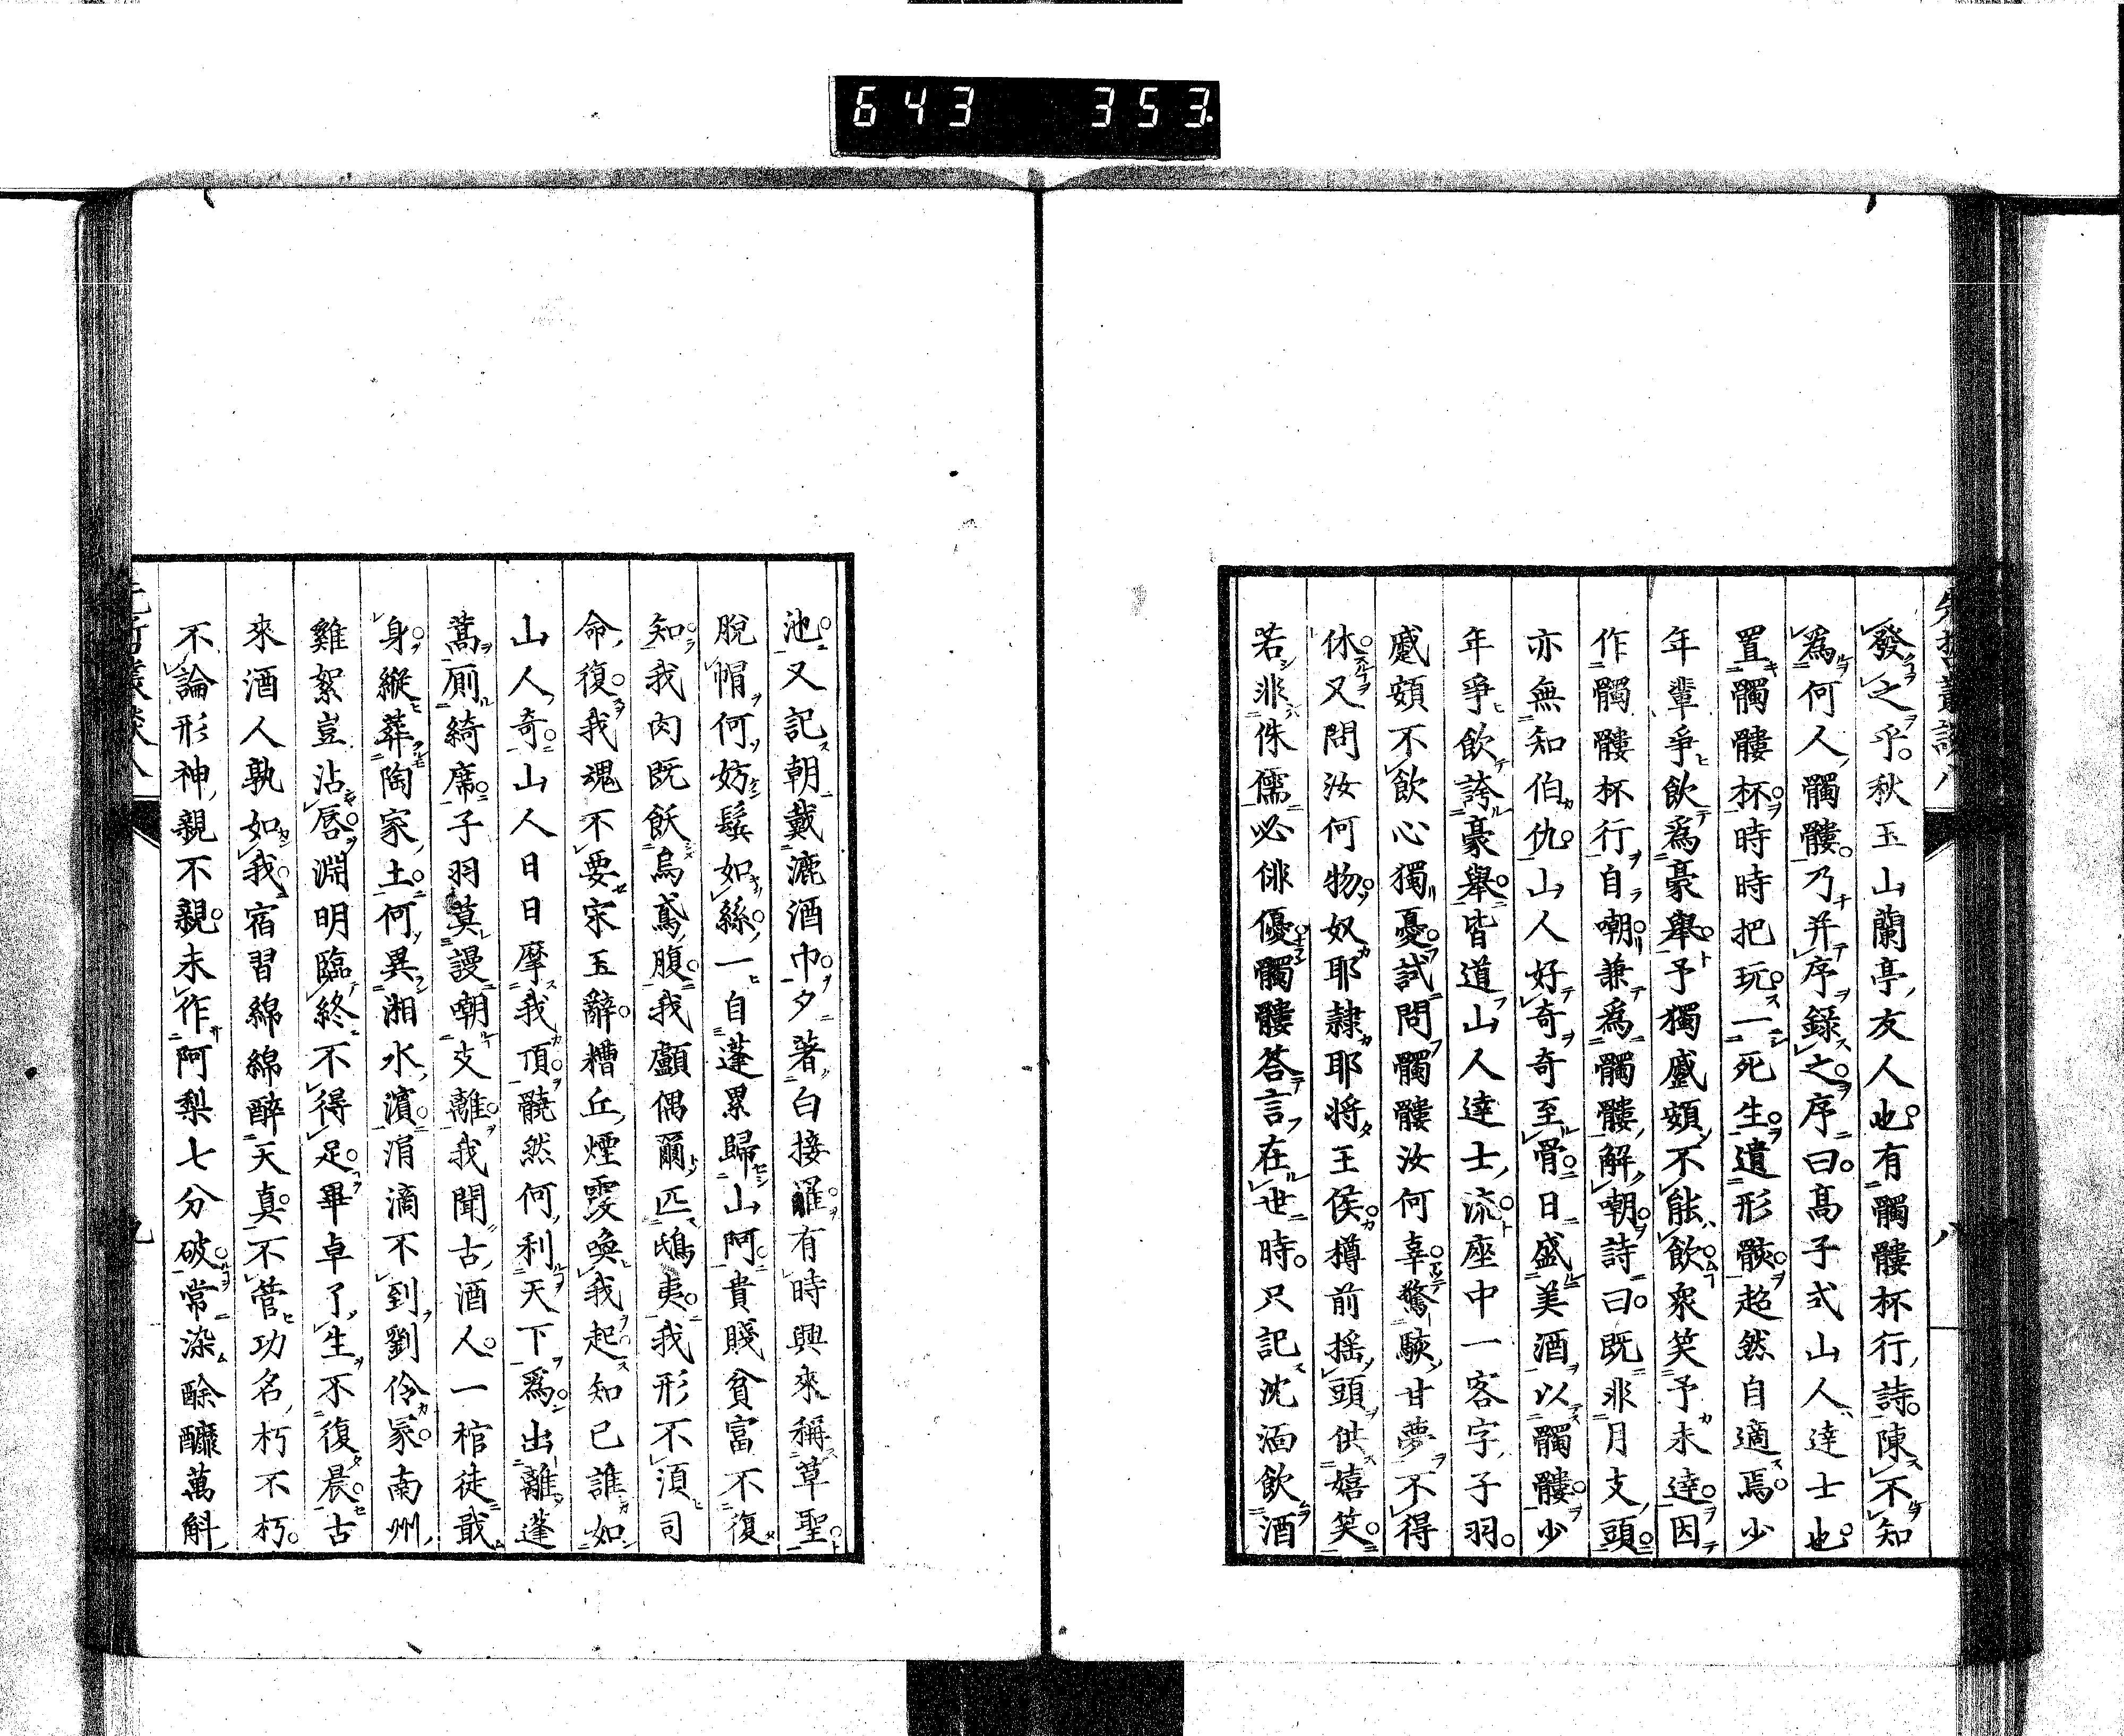 643 353
先哲叢談八
八
發之乎。秋玉山蘭亭友人也。有髑髏杯行詩。陳不知
爲何人髑髏。乃并序錄之。序曰。高子式山人達士也。
置髑髏杯。時時把玩。一死生。遺形骸。超然自適焉。少
年輩爭飲爲豪舉。予獨蹙頞不能飲。衆笑予未達。因
作髑髏杯行自嘲。兼爲髑髏解嘲。詩曰。既非月支頭。
亦無知伯仇。山人好奇奇至骨。日盛美酒以髑髏。少
年爭飲誇豪舉。皆道山人達士流。座中一客字子羽。
蹙頞不飲心獨憂。試問髑髏汝何辜。驚駭甘夢不得
休。又問汝何物。奴耶隷耶将王侯。樽前揺頭供嬉笑。
若非侏儒必俳優。髑髏答言在世時。只記沈湎飲酒
池。又記朝戴漉酒巾。夕著白接䍦。有時興來稱草聖。
脫帽何妨鬂如絲。一自蓬累歸山阿。貴賤貧富不復
知。我肉既飫烏鳶腹。我顱偶爾匹鴟夷。我形不須司
命復。我魂不要宋玉辭。糟丘煙雯喚我起。知已誰如
山人奇。山人日日摩我頂。髐然何利天下爲。出離蓬
蒿厠綺席。子羽莫謾嘲支離。我聞古酒人。一棺徒戢
身。縱葬陶家土。何異湘水濱。涓滴不到劉伶冢。南州
雞絮豈沾唇。淵明臨終不得足。畢卓了生不復晨。古
來酒人孰如我。宿習綿綿醉天真。不管功名朽不朽。
不論形神親不親。未作阿梨七分破。常染酴醾萬斛